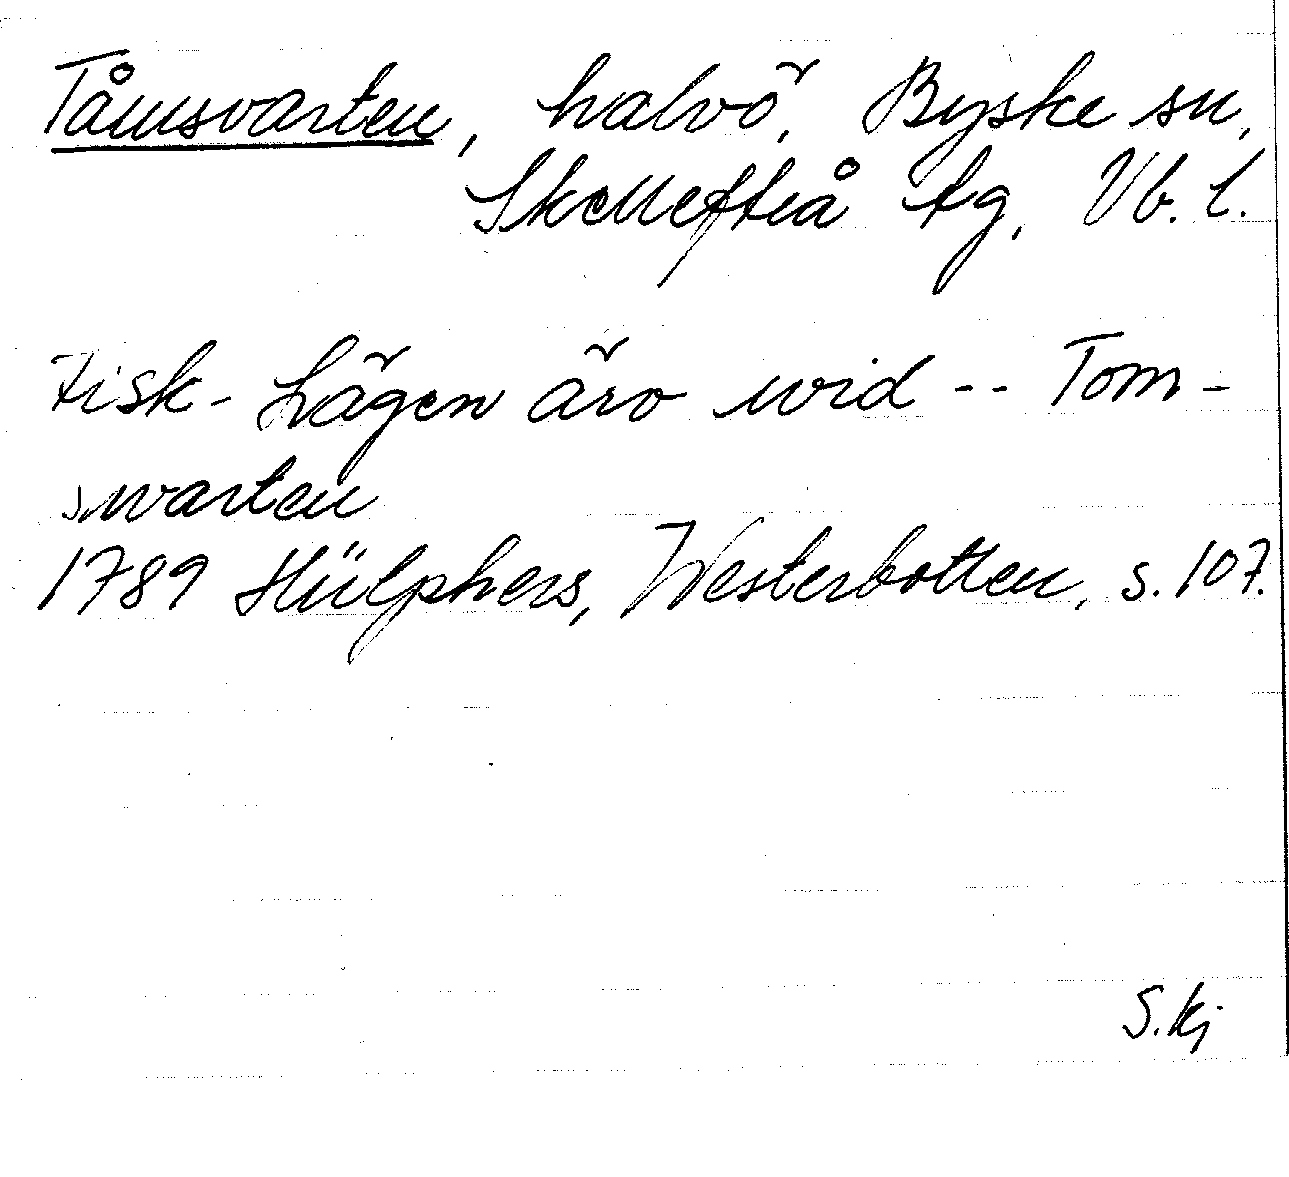 Tåmsvarten, halvö, Byske sn,
Skellefteå tg, Vb. l.
Fisk-Lägen äro wid -- Tom-
swarten
1789 Hülphers, Westerbotten, s. 107.
S. Kj